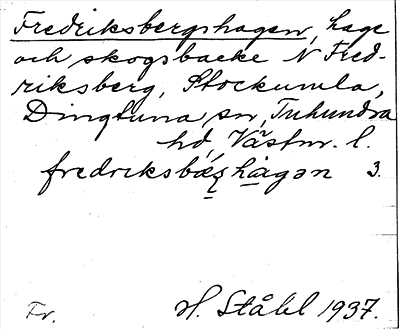 Fredriksbergshagen, hage
och skogsbacke N Fred-
riksberg, Stockumla,
Dingtuna sn, Tuhundra
hd, Västm. l.
fredriksbæ̀rʒhàgən 3.
Fr. H. Ståhl 1937.